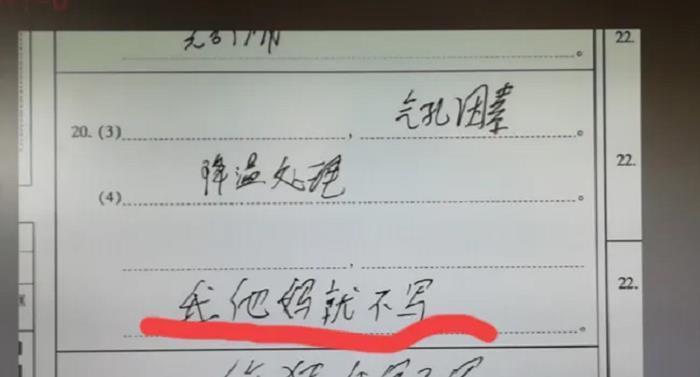 22.
气孔因素
20. (3) , 。
降温处理
22.
(4) 。
,
22.
我他妈就不写
。